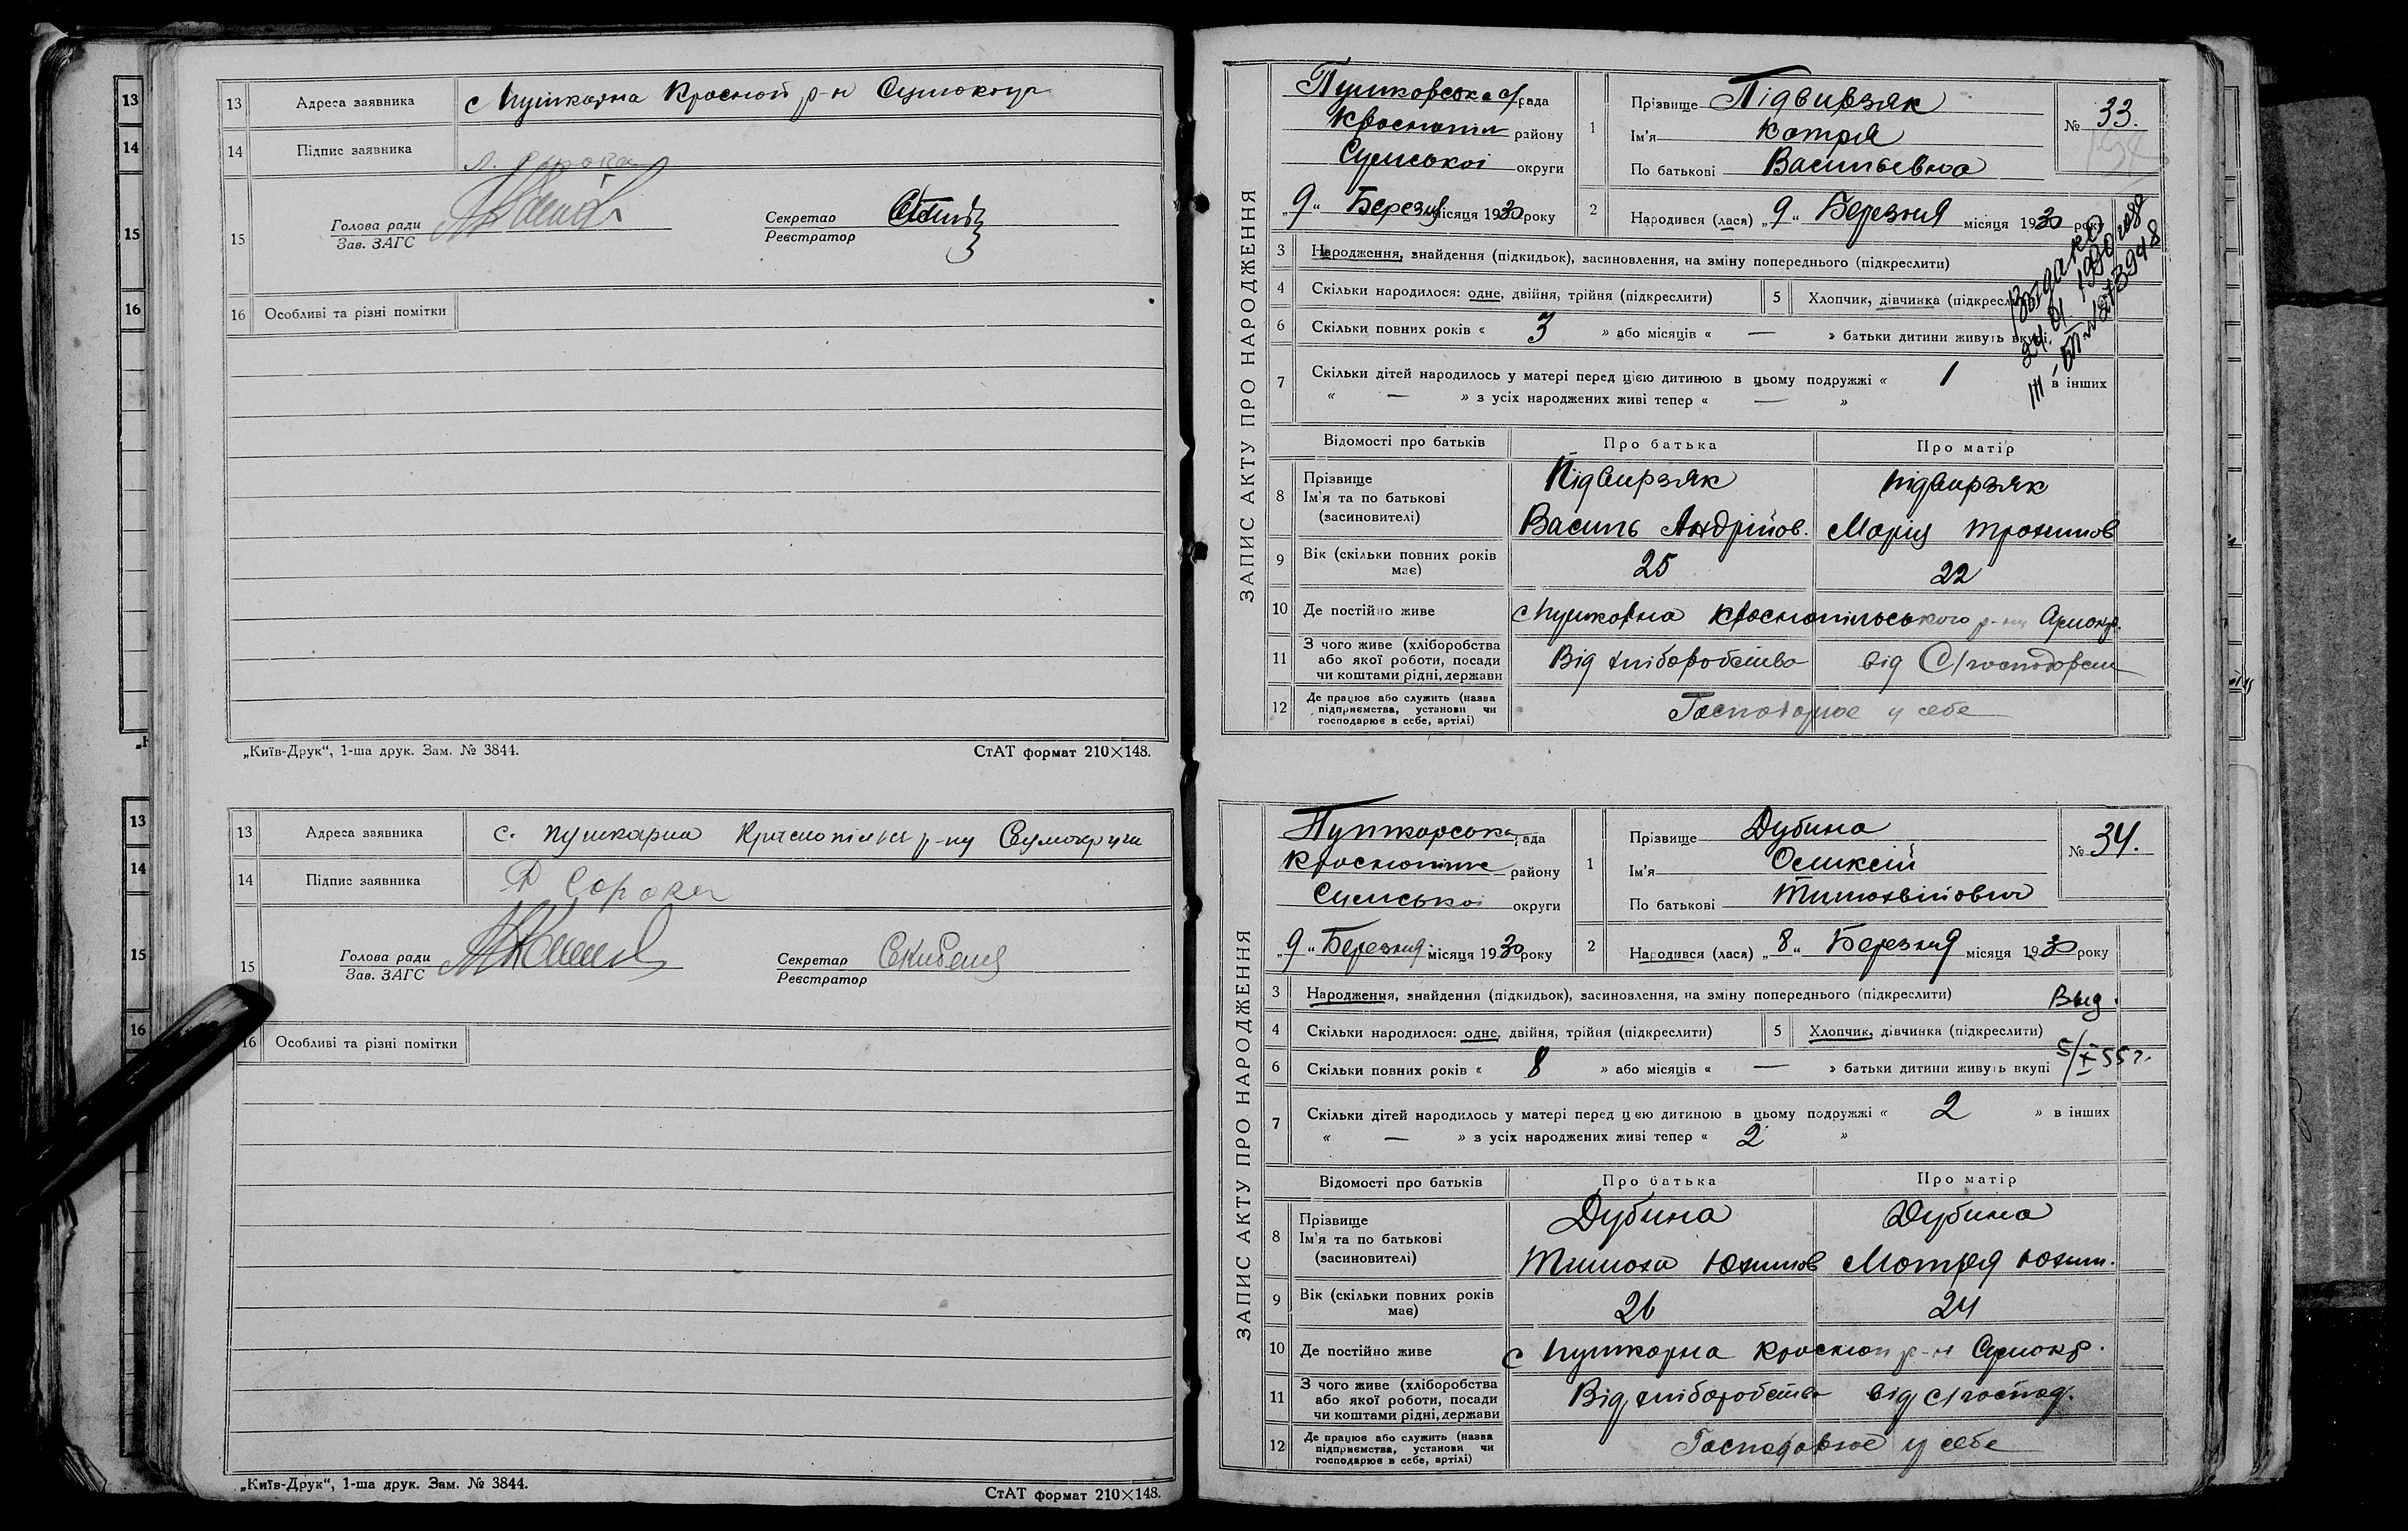 13 Адреса заявника с Пушкарна Краснопіл р-н Сумокруг
14 Підпис заявника Л. Сорока
15 Голова ради
Зав. ЗАГС
Секретар
Реєстратор
16 Особливі та різні помітки
„Київ-Друк“, 1-ша друк. Зам. № 3844. СтАТ формат 210×148.
13 Адреса заявника с. Пушкарна Краснопільськ р-ну Сумокруги
14 Підпис заявника Сорока
15 Голова ради
Зав. ЗАГС
Секретар
Реєстратор
16 Особливі та різні помітки
„Київ-Друк“, 1-ша друк. Зам. № 3844. СтАТ формат 210×148.
ЗАПИС АКТУ ПРО НАРОДЖЕННЯ
Пушкарська с/рада
Краснопіл району
Сумської округи
„9“ Березня місяця 1930 року
1 Прізвище Підвирзяк
Ім'я Катря
По батькові Васильевна
№ 33.
2 Народився (лася) „9“ Березня місяця 1930 року
3 Народження, знайдення (підкидьок), засиновлення, на зміну попереднього (підкреслити)
4 Скільки народилося: одне, двійня, трійня (підкреслити) 5 Хлопчик, дівчинка (підкреслити)
6 Скільки повних років « 3 » або місяців « — » батьки дитини живуть вкупі
7 Скільки дітей народилось у матері перед цією дитиною в цьому подружжі « 1 » в інших
« — » з усіх народжених живі тепер « — »
Відомості про батьків Про батька Про матір
8 Прізвище
Ім'я та по батькові
(засиновителі)
Підвирзяк Підвирзяк
Василь Андрійов. Марія Трохимов
9 Вік (скільки повних років має) 25 22
10 Де постійно живе с Пушкарна Краснопільського р-ну Сумокр.
11 З чого живе (хліборобства
або якої роботи, посади
чи коштами рідні, держави
Від хліборобства від С/господарства
12 Де працює або служить (назва
підприємства, установи чи
господарює в себе, артілі)
Господарює у себе
ЗАПИС АКТУ ПРО НАРОДЖЕННЯ
Пушкарська рада
Краснопілля району
Сумської округи
„9“ Березня місяця 1930 року
1 Прізвище Дубина
Ім'я Оликсій
По батькові Тимохвійович
№ 34.
2 Народився (лася) „8“ Березня місяця 1930 року
3 Народження, знайдення (підкидьок), засиновлення, на зміну попереднього (підкреслити)
Выд.
4 Скільки народилося: одне, двійня, трійня (підкреслити) 5 Хлопчик, дівчинка (підкреслити)
5/X 55 г.
6 Скільки повних років « 8 » або місяців « — » батьки дитини живуть вкупі
7 Скільки дітей народилось у матері перед цією дитиною в цьому подружжі « 2 » в інших
« — » з усіх народжених живі тепер « 2 »
Відомості про батьків Про батька Про матір
8 Прізвище
Ім'я та по батькові
(засиновителі)
Дубина Дубина
Тимоха Юхимов Мотря Юхим.
9 Вік (скільки повних років має) 26 24
10 Де постійно живе с Пушкарна Краснопі р-н Сумокр.
11 З чого живе (хліборобства
або якої роботи, посади
чи коштами рідні, держави
Від хліборобства від С/господ.
12 Де працює або служить (назва
підприємства, установи чи
господарює в себе, артілі)
Господарює у себе